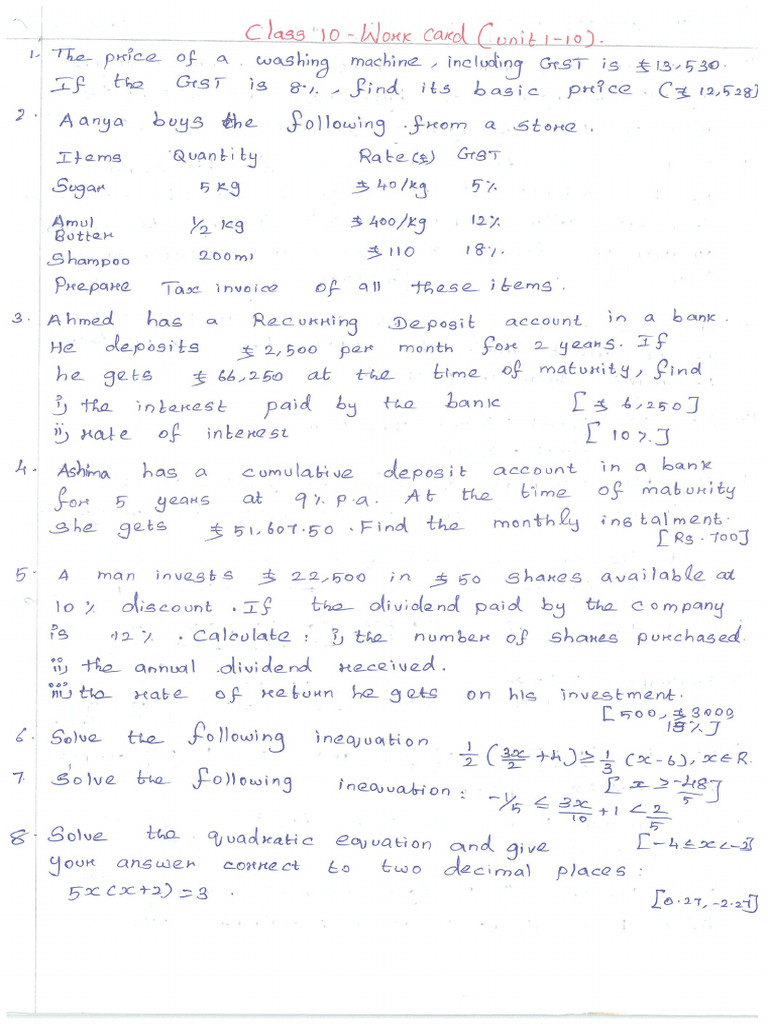 Class 10 - Work card (unit 1-10).
1. The price of a washing machine, including GST is ₹ 13,530.
If the GST is 8%, find its basic price. (₹ 12,528]
2. Aanya buys the following from a store.
Items Quantity Rate(₹) GST
Sugar 5 kg ₹ 40/kg 5%
Amul Butter 1/2 kg ₹ 400/kg 12%
Shampoo 200ml ₹ 110 18%.
Prepare Tax invoice of all these items.
3. Ahmed has a Recurring Deposit account in a bank.
He deposits ₹ 2,500 per month for 2 years. If
he gets ₹ 66,250 at the time of maturity, find
i, the interest paid by the bank [ ₹ 6,250]
ii, rate of interest [ 10%.]
4. Ashima has a cumulative deposit account in a bank
for 5 years at 9% p.a. At the time of maturity
she gets ₹ 51,607.50. Find the monthly instalment.
[Rs. 700]
5. A man invests ₹ 22,500 in ₹ 50 shares available at
10% discount. If the dividend paid by the company
is 12%. Calculate: i, the number of shares purchased.
ii, the annual dividend received.
iii, the rate of return he gets on his investment.
[500, ₹3000
%]
6. Solve the following inequation 1/2 (3x/2 + 4) ≥ 1/3 (x-6), x ∈ R.
[ x ≥ -48/5 ]
7. Solve the following inequation: -1/5 ≤ 3x/10 + 1 < 2/5
[-4 ≤ x < -2]
8. Solve the quadratic equation and give
your answer correct to two decimal places:
5x(x+2) = 3.
[0.27, -2.27]